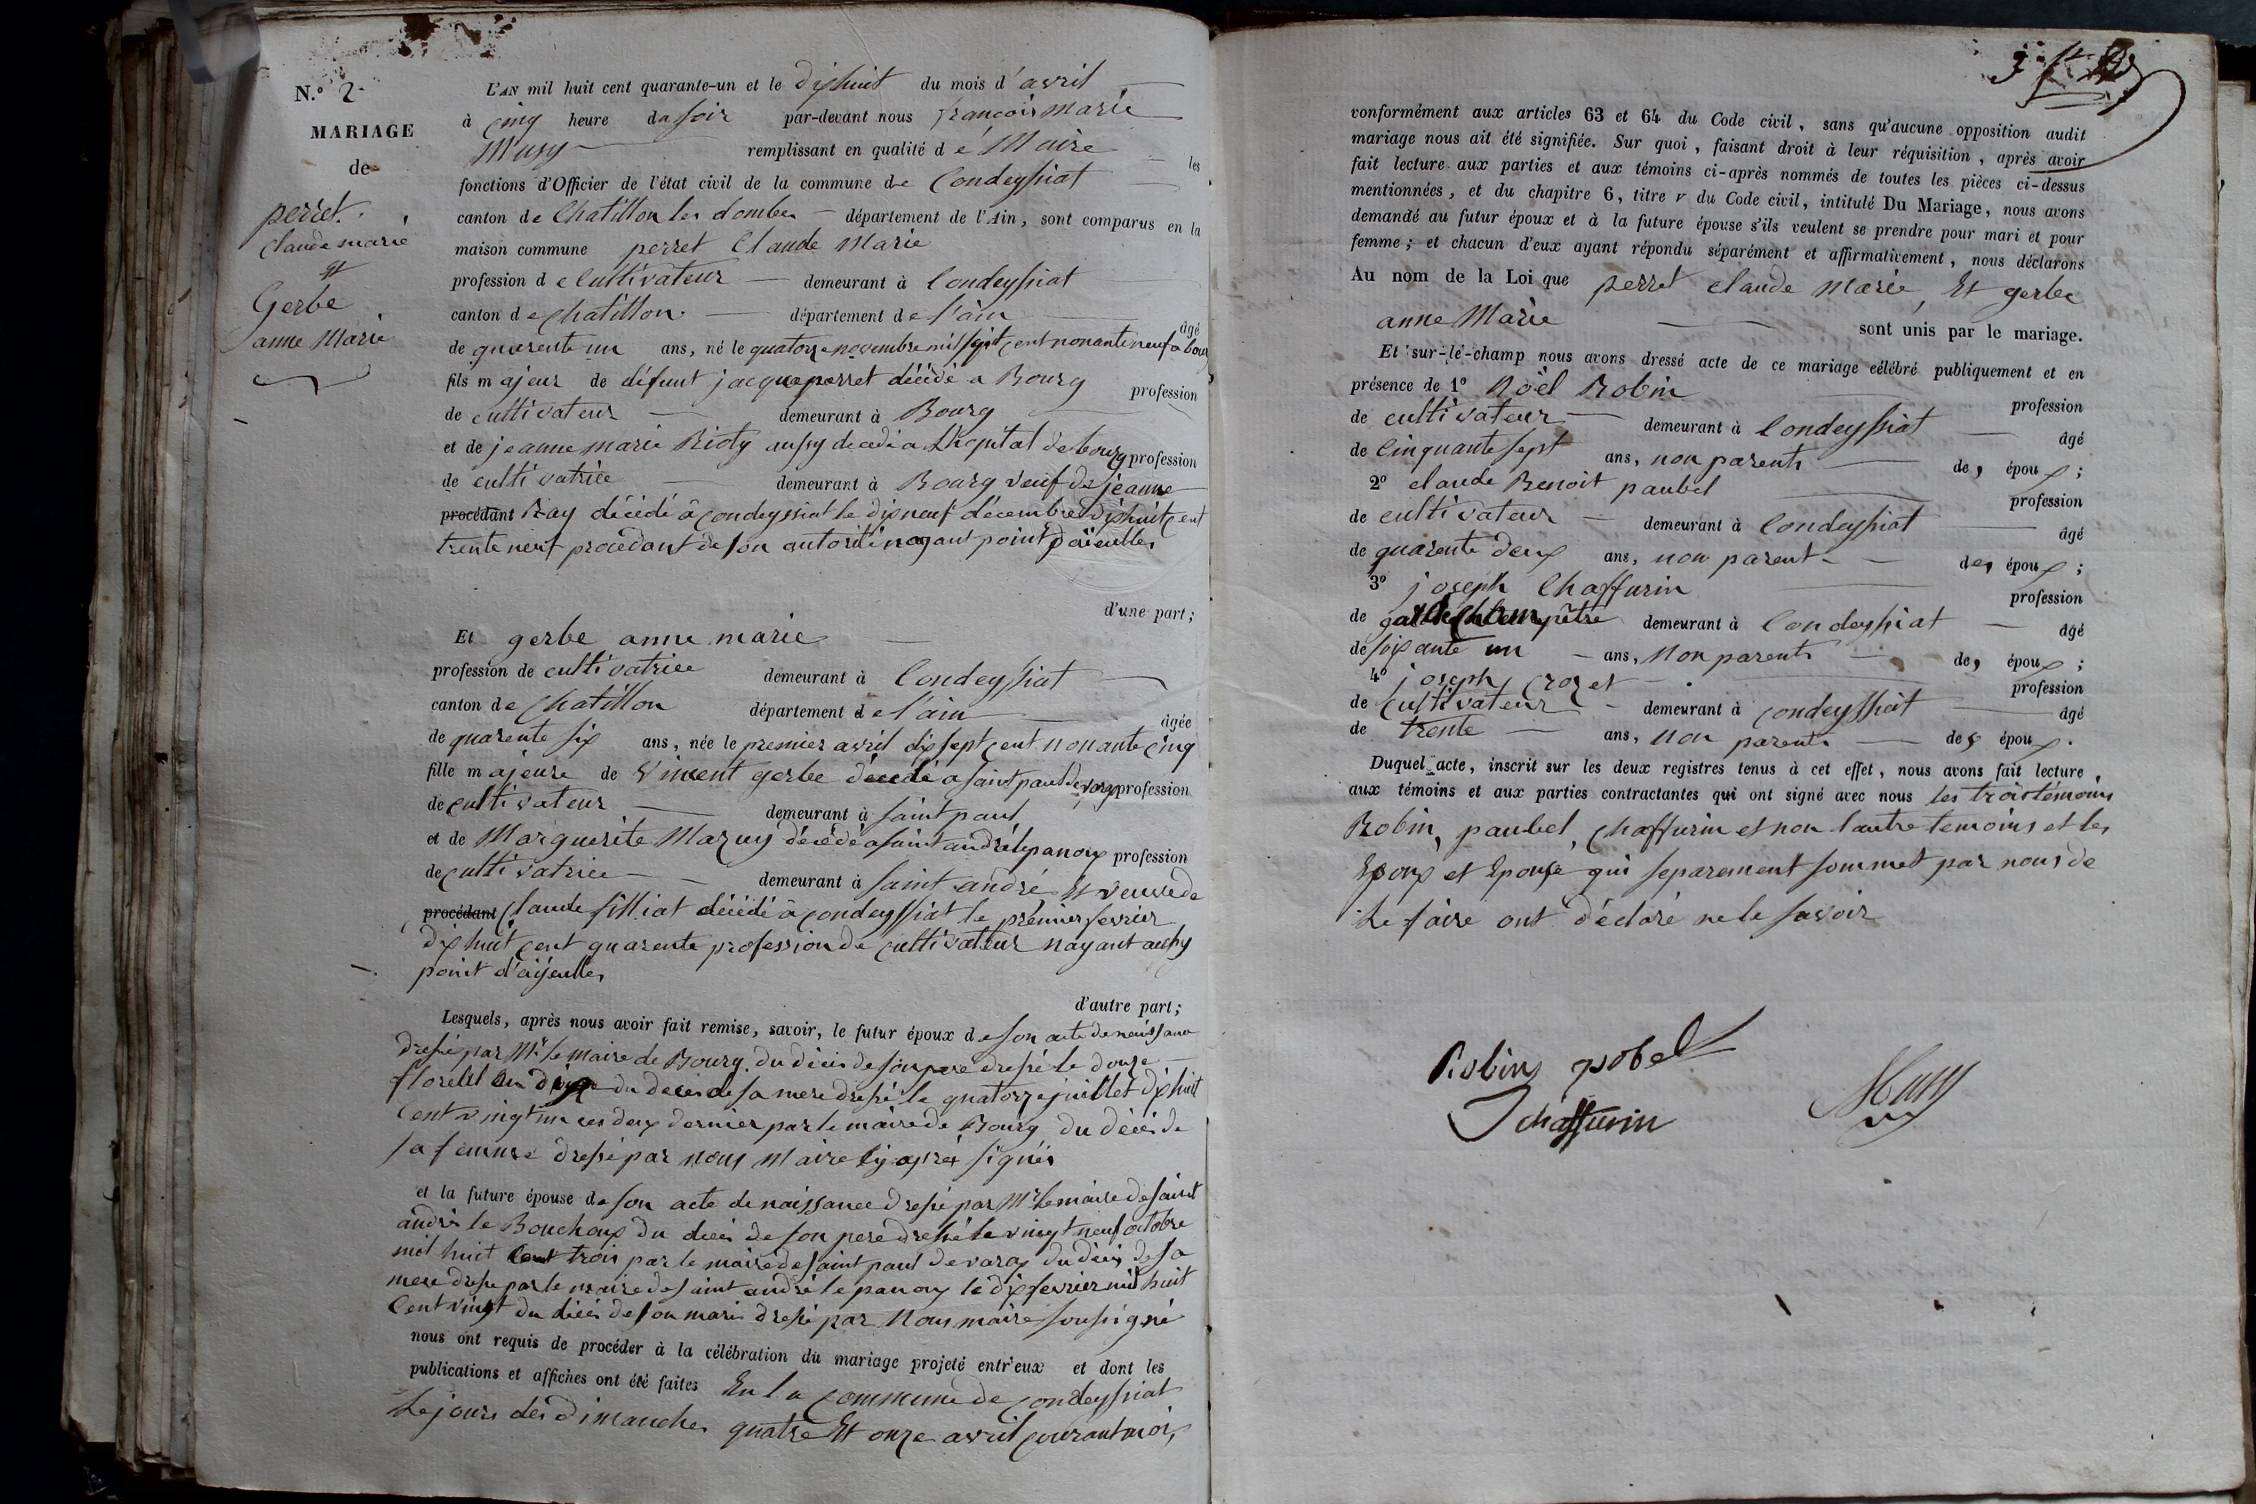 N.º 2
MARIAGE
de
perret
Claude marie
Et
Gerbe
anne Marie
L'AN mil huit cent quarante-un et le dixhuit du mois d'avril
à cinq heure du soir par-devant nous françois marie
Musy remplissant en qualité de Maire les
fonctions d'Officier de l'état civil de la commune de Condeyssiat
canton de Chatillon les dombes département de l'Ain, sont comparus en la
maison commune perret Claude Marie
profession de Cultivateur demeurant à Condeyssiat
canton de Chatillon département de l'ain âgé
de quarente un ans, né le quatorze novembre mil sept cent nonante neuf a bourg
fils majeur de défunt jacque perret décédé a Bourg profession
de cultivateur demeurant à Bourg
et de jeanne marie Rioty aussy decedé a Lhopital de bourg profession
de cultivatrice demeurant à Bourg veuf de jeanne
procédant Ray décédé à condeyssiat le dix neuf décembre dixhuit cent
trente neuf procédant de son autorité nayant point d'aieulles
d'une part;
Et gerbe anne marie
profession de cultivatrice demeurant à Condeyssiat
canton de Chatillon département de l'ain âgée
de quarente six ans, née le premier avril dix sept cent nonante cinq
fille majeure de Vincent gerbe décédé a saint paul de varax profession
de cultivateur demeurant à saint paul
et de Marguerite Mazuy décédé a saint andré le panoux profession
de cultivatrice demeurant à saint andré Et veuve de
procédant Claude filliat décédé à condeyssiat le prémier fevrier
dixhuit cent quarente profession de cultivateur nayant aussy
point d'aijeulles
d'autre part;
Lesquels, après nous avoir fait remise, savoir, le futur époux de son acte de naissance
dressé par Mr le maire de Bourg. du décès de son pere dressé le douze
floreal an du deces de sa mere dressé le quatorze juillet dixhuit
Cent vingt un ces deux dernier par le maire de Bourg du décès de
sa femme dressé par nous Maire cy après signés
et la future épouse de son acte de naissance dressé par Mr le maire de saint
andré le Bouchoux du décès de son pere dressé le vingt neuf octobre
mil huit Cent trois par le maire de saint paul de varax du décès de sa
mere dressé par le maire de saint andré le panoux le dix fevrier mil huit
Cent vingt du décès de son mari dressé par Nous maire soussigné
nous ont requis de procéder à la célébration du mariage projeté entr'eux et dont les
publications et affiches ont été faites En la commune de condeyssiat
Le jours des Dimanches quatre Et onze avril courant mois,
conformément aux articles 63 et 64 du Code civil, sans qu'aucune opposition audit
mariage nous ait été signifiée. Sur quoi, faisant droit à leur réquisition, après avoir
fait lecture aux parties et aux témoins ci-après nommés de toutes les pièces ci-dessus
mentionnées, et du chapitre 6, titre V du Code civil, intitulé Du Mariage, nous avons
demandé au futur époux et à la future épouse s'ils veulent se prendre pour mari et pour
femme; et chacun d'eux ayant répondu séparément et affirmativement, nous déclarons
Au nom de la Loi que perret claude marie, Et gerbe
anne Marie sont unis par le mariage.
Et sur-le-champ nous avons dressé acte de ce mariage célébré publiquement et en
présence de 1º Noël Robin profession
de cultivateur demeurant à Condeyssiat âgé
de Cinquante sept ans, non parents des époux;
2º claude Benoit paubel profession
de cultivateur demeurant à Condeyssiat âgé
de quarente deux ans, non parent des époux;
3º joseph Chaffurin profession
de garde champêtre demeurant à Condeyssiat âgé
de soixante un ans, Non parents des époux;
4º joseph crozet profession
de Cultivateur demeurant à condeyssiat âgé
de trente ans, Non parents des époux.
Duquel acte, inscrit sur les deux registres tenus à cet effet, nous avons fait lecture,
aux témoins et aux parties contractantes qui ont signé avec nous les trois témoins
Robin, paubel, Chaffurin et non l'autre temoins et les
Epoux et Epouse qui separement sommet par nous de
Le faire ont déclaré ne le savoir
Robin pobel Musy
J chaffurin